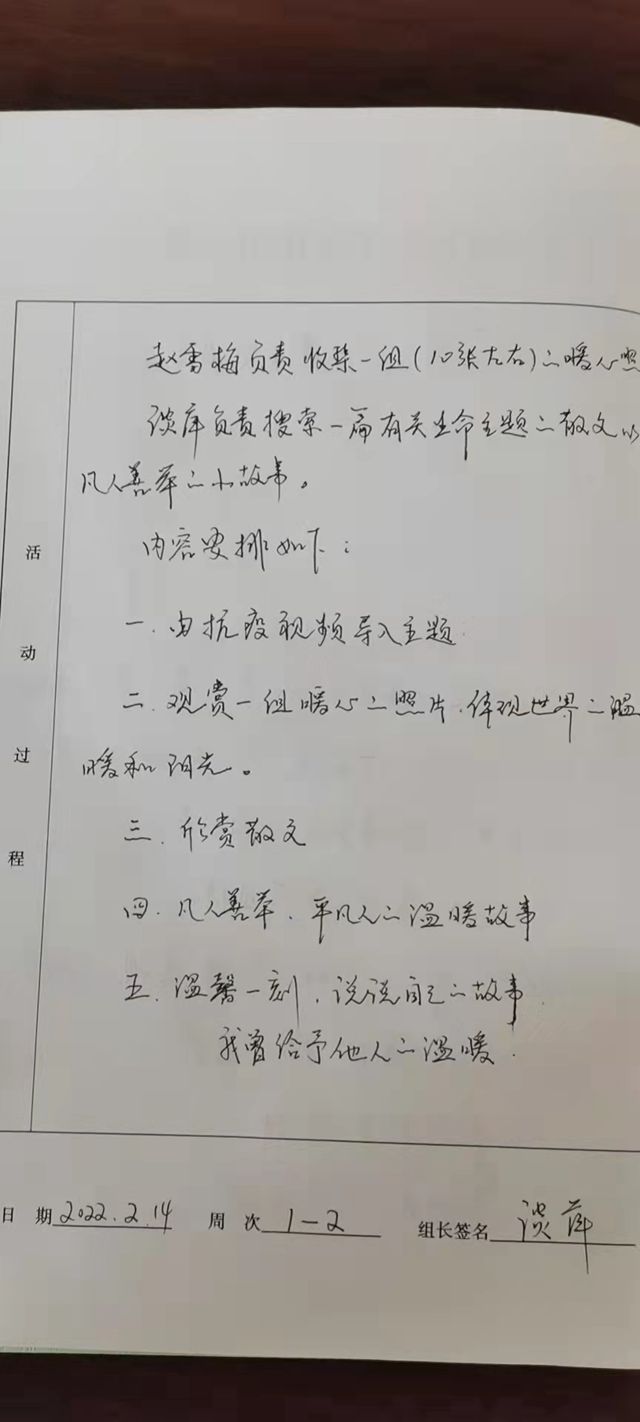 赵雪梅负责收集一组(10张左右)的暖心照
谈萍负责搜索一篇有关生命主题的散文以
凡人善举的小故事。
内容安排如下：
一.由抗疫视频导入主题.
二.观赏一组暖心的照片.体现世界的温
暖和阳光。
三.欣赏散文
四.凡人善举.平凡人的温暖故事
五.温馨一刻.说说自己的故事.
我曾给予他人的温暖.
活动过程
日期 2022.2.14 周次 1-2 组长签名 谈萍